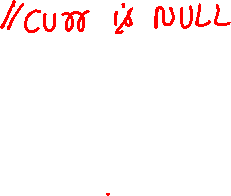 //curr is NULL